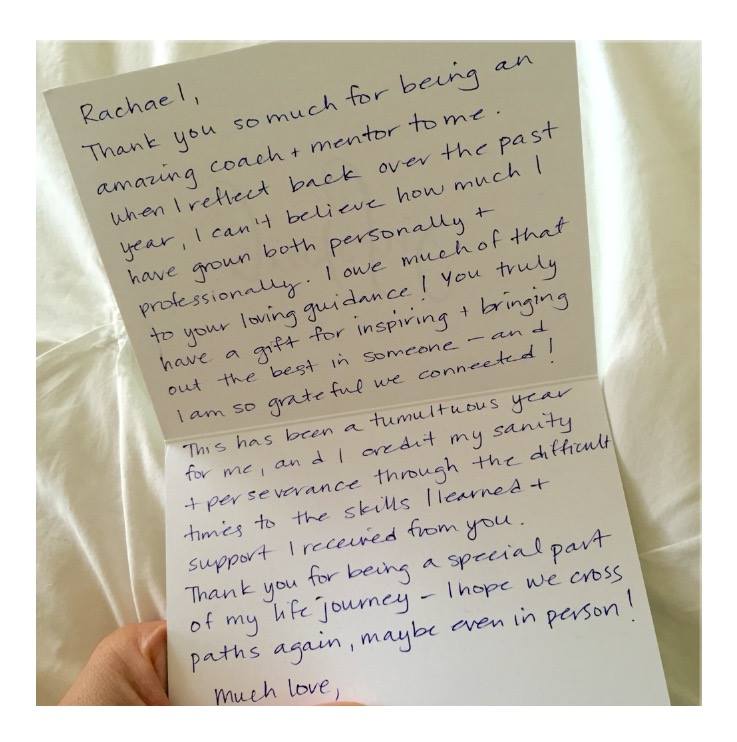 Rachael,
Thank you so much for being an
amazing coach + mentor to me.
When I reflect back over the past
year, I can't believe how much I
have grown both personally +
professionally. I owe much of that
to your loving guidance! You truly
have a gift for inspiring + bringing
out the best in someone - and
I am so grateful we connected!
This has been a tumultuous year
for me, and I credit my sanity
+ perseverance through the difficult
times to the skills I learned +
support I received from you.
Thank you for being a special part
of my life journey - I hope we cross
paths again, maybe even in person!
Much love,